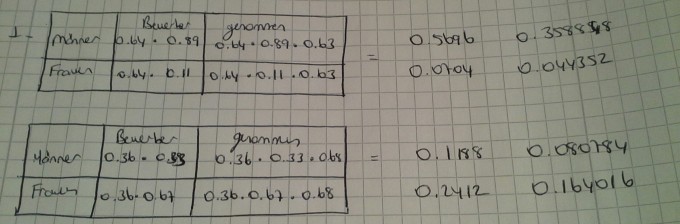 1. Bewerber genommen
Männer 0.64 · 0.89 0.64 · 0.89 · 0.63 = 0.5696 0.358848
Frauen 0.64 · 0.11 0.64 · 0.11 · 0.63 0.0704 0.044352
Bewerber genommen
Männer 0.36 · 0.33 0.36 · 0.33 · 0.68 = 0.1188 0.080784
Frauen 0.36 · 0.67 0.36 · 0.67 · 0.68 0.2412 0.164016